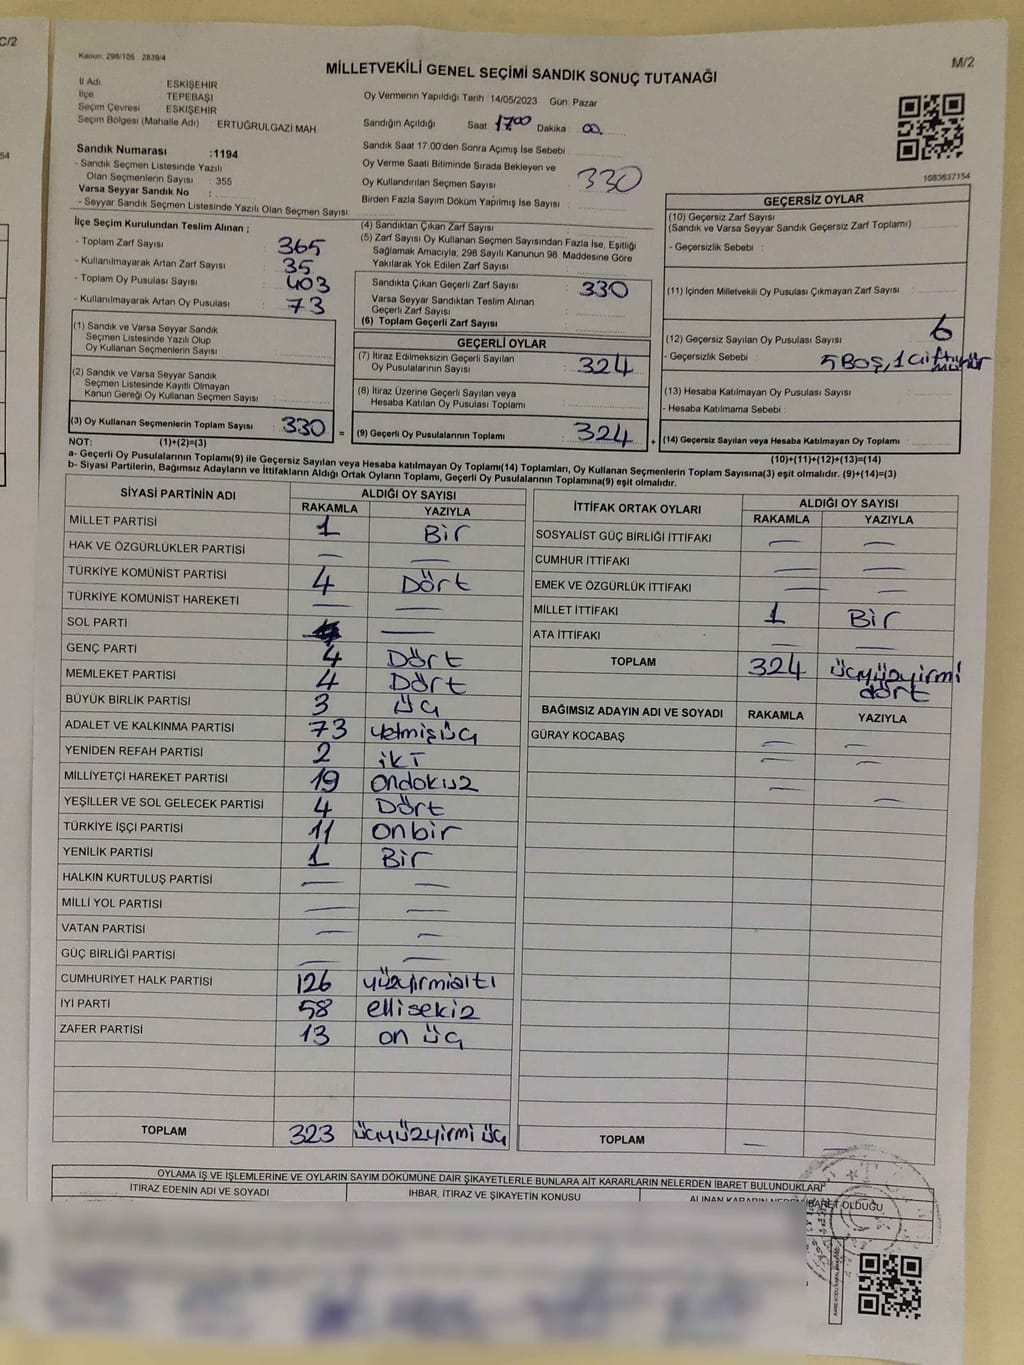 C/2
54
Kanun: 298/105 2839/4
MİLLETVEKİLİ GENEL SEÇİMİ SANDIK SONUÇ TUTANAĞI
M/2
İl Adı ESKİŞEHİR
İlçe TEPEBAŞI
Seçim Çevresi ESKİŞEHİR
Seçim Bölgesi (Mahalle Adı) ERTUĞRULGAZİ MAH.
Oy Vermenin Yapıldığı Tarih :14/05/2023 Gün: Pazar
Sandığın Açıldığı Saat :17 00 Dakika : 00.
Sandık Saat 17:00'den Sonra Açımış İse Sebebi
Oy Verme Saati Bitiminde Sırada Bekleyen ve
Oy Kullandırılan Seçmen Sayısı 330
Birden Fazla Sayım Döküm Yapılmış İse Sayısı :
1083637154
Sandık Numarası :1194
- Sandık Seçmen Listesinde Yazılı
Olan Seçmenlerin Sayısı : 355
Varsa Seyyar Sandık No :
- Seyyar Sandık Seçmen Listesinde Yazılı Olan Seçmen Sayısı:
İlçe Seçim Kurulundan Teslim Alınan ;
- Toplam Zarf Sayısı : 365
- Kullanılmayarak Artan Zarf Sayısı : 35
- Toplam Oy Pusulası Sayısı : 403
- Kullanılmayarak Artan Oy Pusulası : 73
(1) Sandık ve Varsa Seyyar Sandık
Seçmen Listesinde Yazılı Olup
Oy Kullanan Seçmenlerin Sayısı :
(2) Sandık ve Varsa Seyyar Sandık
Seçmen Listesinde Kayıtlı Olmayan
Kanun Gereği Oy Kullanan Seçmen Sayısı :
(3) Oy Kullanan Seçmenlerin Toplam Sayısı : 330 =
(4) Sandıktan Çıkan Zarf Sayısı :
(5) Zarf Sayısı Oy Kullanan Seçmen Sayısından Fazla İse, Eşitliği
Sağlamak Amacıyla; 298 Sayılı Kanunun 98. Maddesine Göre
Yakılarak Yok Edilen Zarf Sayısı :
Sandıkta Çıkan Geçerli Zarf Sayısı : 330
Varsa Seyyar Sandıktan Teslim Alınan
Geçerli Zarf Sayısı :
(6) Toplam Geçerli Zarf Sayısı :
GEÇERLİ OYLAR
(7) İtiraz Edilmeksizin Geçerli Sayılan
Oy Pusulalarının Sayısı : 324
(8) İtiraz Üzerine Geçerli Sayılan veya
Hesaba Katılan Oy Pusulası Toplamı :
(9) Geçerli Oy Pusulalarının Toplamı : 324 +
GEÇERSİZ OYLAR
(10) Geçersiz Zarf Sayısı
(Sandık ve Varsa Seyyar Sandık Geçersiz Zarf Toplamı) :
- Geçersizlik Sebebi :
(11) İçinden Milletvekili Oy Pusulası Çıkmayan Zarf Sayısı :
(12) Geçersiz Sayılan Oy Pusulası Sayısı : 6
- Geçersizlik Sebebi : 5 BOŞ, 1 Çift mühür
(13) Hesaba Katılmayan Oy Pusulası Sayısı :
- Hesaba Katılmama Sebebi :
(14) Geçersiz Sayılan veya Hesaba Katılmayan Oy Toplamı :
NOT: (1)+(2)=(3)
(10)+(11)+(12)+(13)=(14)
a- Geçerli Oy Pusulalarının Toplamı(9) ile Geçersiz Sayılan veya Hesaba katılmayan Oy Toplamı(14) Toplamları, Oy Kullanan Seçmenlerin Toplam Sayısına(3) eşit olmalıdır. (9)+(14)=(3)
b- Siyasi Partilerin, Bağımsız Adayların ve İttifakların Aldığı Ortak Oyların Toplamı, Geçerli Oy Pusulalarının Toplamına(9) eşit olmalıdır.
SİYASİ PARTİNİN ADI ALDIĞI OY SAYISI
RAKAMLA YAZIYLA
MİLLET PARTİSİ 1 Bir
HAK VE ÖZGÜRLÜKLER PARTİSİ — —
TÜRKİYE KOMÜNİST PARTİSİ 4 Dört
TÜRKİYE KOMÜNİST HAREKETİ — —
SOL PARTİ —
GENÇ PARTİ 4 Dört
MEMLEKET PARTİSİ 4 Dört
BÜYÜK BİRLİK PARTİSİ 3 üç
ADALET VE KALKINMA PARTİSİ 73 yetmişüç
YENİDEN REFAH PARTİSİ 2 iki
MİLLİYETÇİ HAREKET PARTİSİ 19 ondokuz
YEŞİLLER VE SOL GELECEK PARTİSİ 4 Dört
TÜRKİYE İŞÇİ PARTİSİ 11 onbir
YENİLİK PARTİSİ 1 Bir
HALKIN KURTULUŞ PARTİSİ — —
MİLLİ YOL PARTİSİ — —
VATAN PARTİSİ — —
GÜÇ BİRLİĞİ PARTİSİ — —
CUMHURİYET HALK PARTİSİ 126 yüzyirmialtı
İYİ PARTİ 58 ellisekiz
ZAFER PARTİSİ 13 on üç
TOPLAM 323 üçyüzyirmi üç
İTTİFAK ORTAK OYLARI ALDIĞI OY SAYISI
RAKAMLA YAZIYLA
SOSYALİST GÜÇ BİRLİĞİ İTTİFAKI — —
CUMHUR İTTİFAKI — —
EMEK VE ÖZGÜRLÜK İTTİFAKI — —
MİLLET İTTİFAKI 1 Bir
ATA İTTİFAKI — —
TOPLAM 324 üçyüzyirmi
dört
BAĞIMSIZ ADAYIN ADI VE SOYADI RAKAMLA YAZIYLA
GÜRAY KOCABAŞ — —
— —
— —
TOPLAM —
OYLAMA İŞ VE İŞLEMLERİNE VE OYLARIN SAYIM DÖKÜMÜNE DAİR ŞİKAYETLERLE BUNLARA AİT KARARLARIN NELERDEN İBARET BULUNDUKLARI
İTİRAZ EDENİN ADI VE SOYADI İHBAR, İTİRAZ VE ŞİKAYETİN KONUSU ALINAN KARARIN NEDEN İBARET OLDUĞU